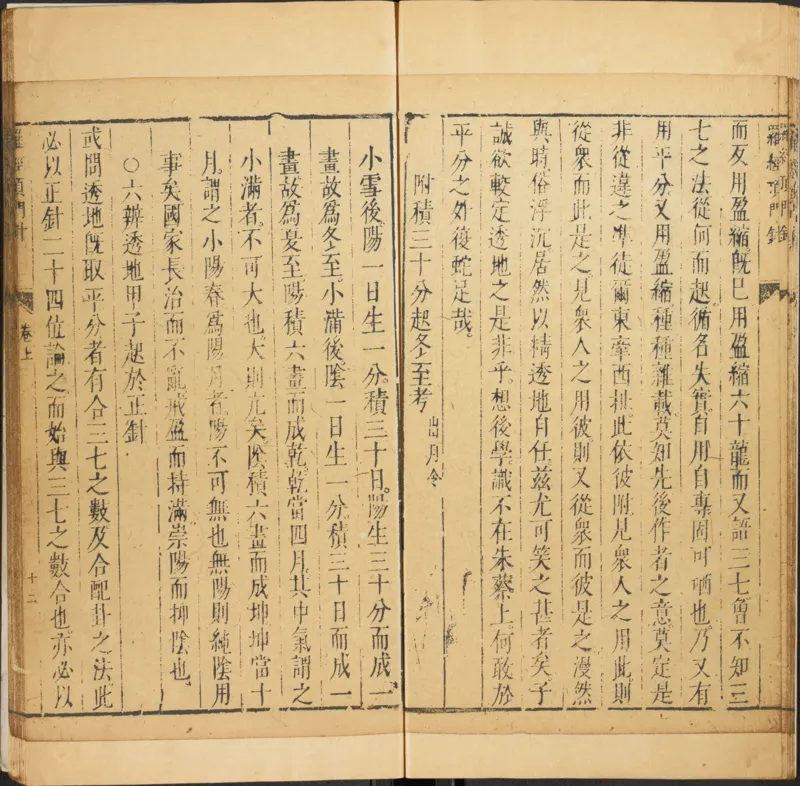 羅經頂門針
而反用盈縮旣巳用盈縮六十龍而又語三七曾不知三
七之法從何而起循名失實自用自專固可哂也乃又有
用平分又用盈縮種種雜載莫知先後作者之意莫定是
非從違之凖徒爾東牽西扯此依彼附見衆人之用此則
從衆而此是之見衆人之用彼則又從衆而彼是之漫然
與時俗浮沉居然以精透地自任茲尤可笑之甚者矣予
誠欲較定透地之是非乎想後學識不在朱蔡上何敢於
平分之外復蛇足哉
附積三十分起冬至考 出月令
小雪後陽一日生一分積三十日陽生三十分而成一
畫故爲冬至小滿後陰一日生一分積三十日而成一
畫故爲夏至陽積六畫而成乾乾當四月其中氣謂之
小滿者不可大也大則亢矣陰積六畫而成坤坤當十
月謂之小陽春爲陽月者陽不可無也無陽則純陰用
事矣國家長治而不亂戒盈而持滿崇陽而抑陰也
○六辨透地甲子起於正針
或問透地旣取平分者有合三七之數及合配卦之法此
必以正針二十四位論之而始與三七之數合也亦必以
羅經頂門針 卷上 十二